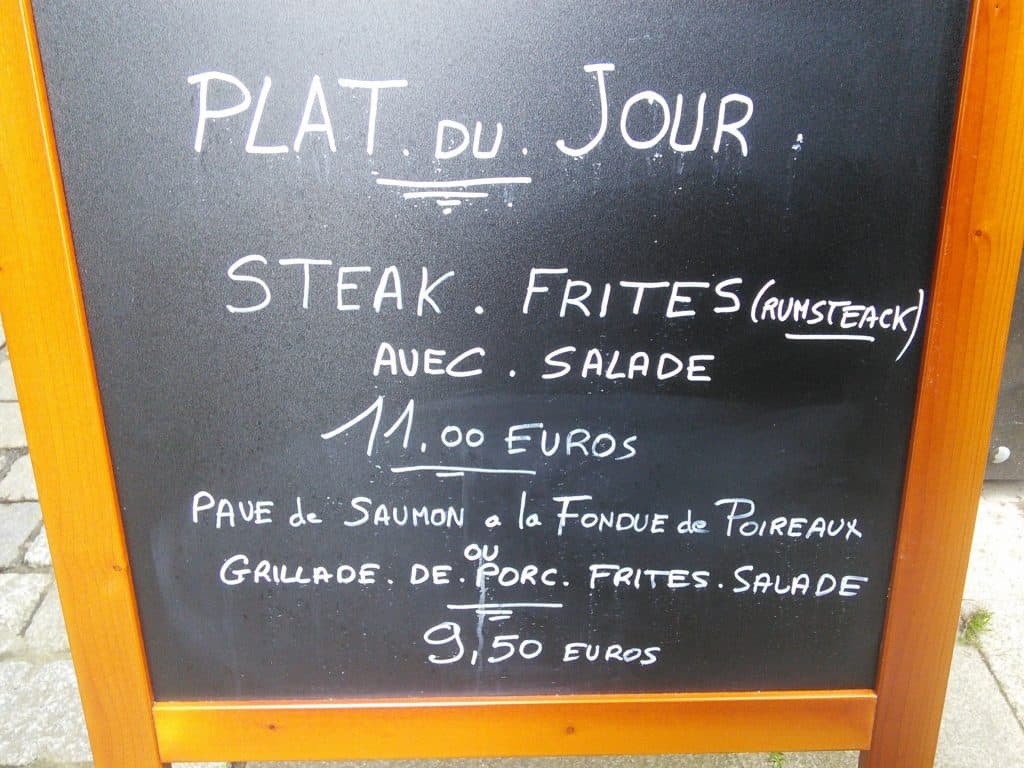 PLAT. DU. JOUR.
STEAK. FRITES (RUMSTEACK)
AVEC. SALADE
11.00 EUROS
PAVE de SAUMON a la FONDUE de POIREAUX
OU
GRILLADE. DE. PORC. FRITES. SALADE
9,50 EUROS